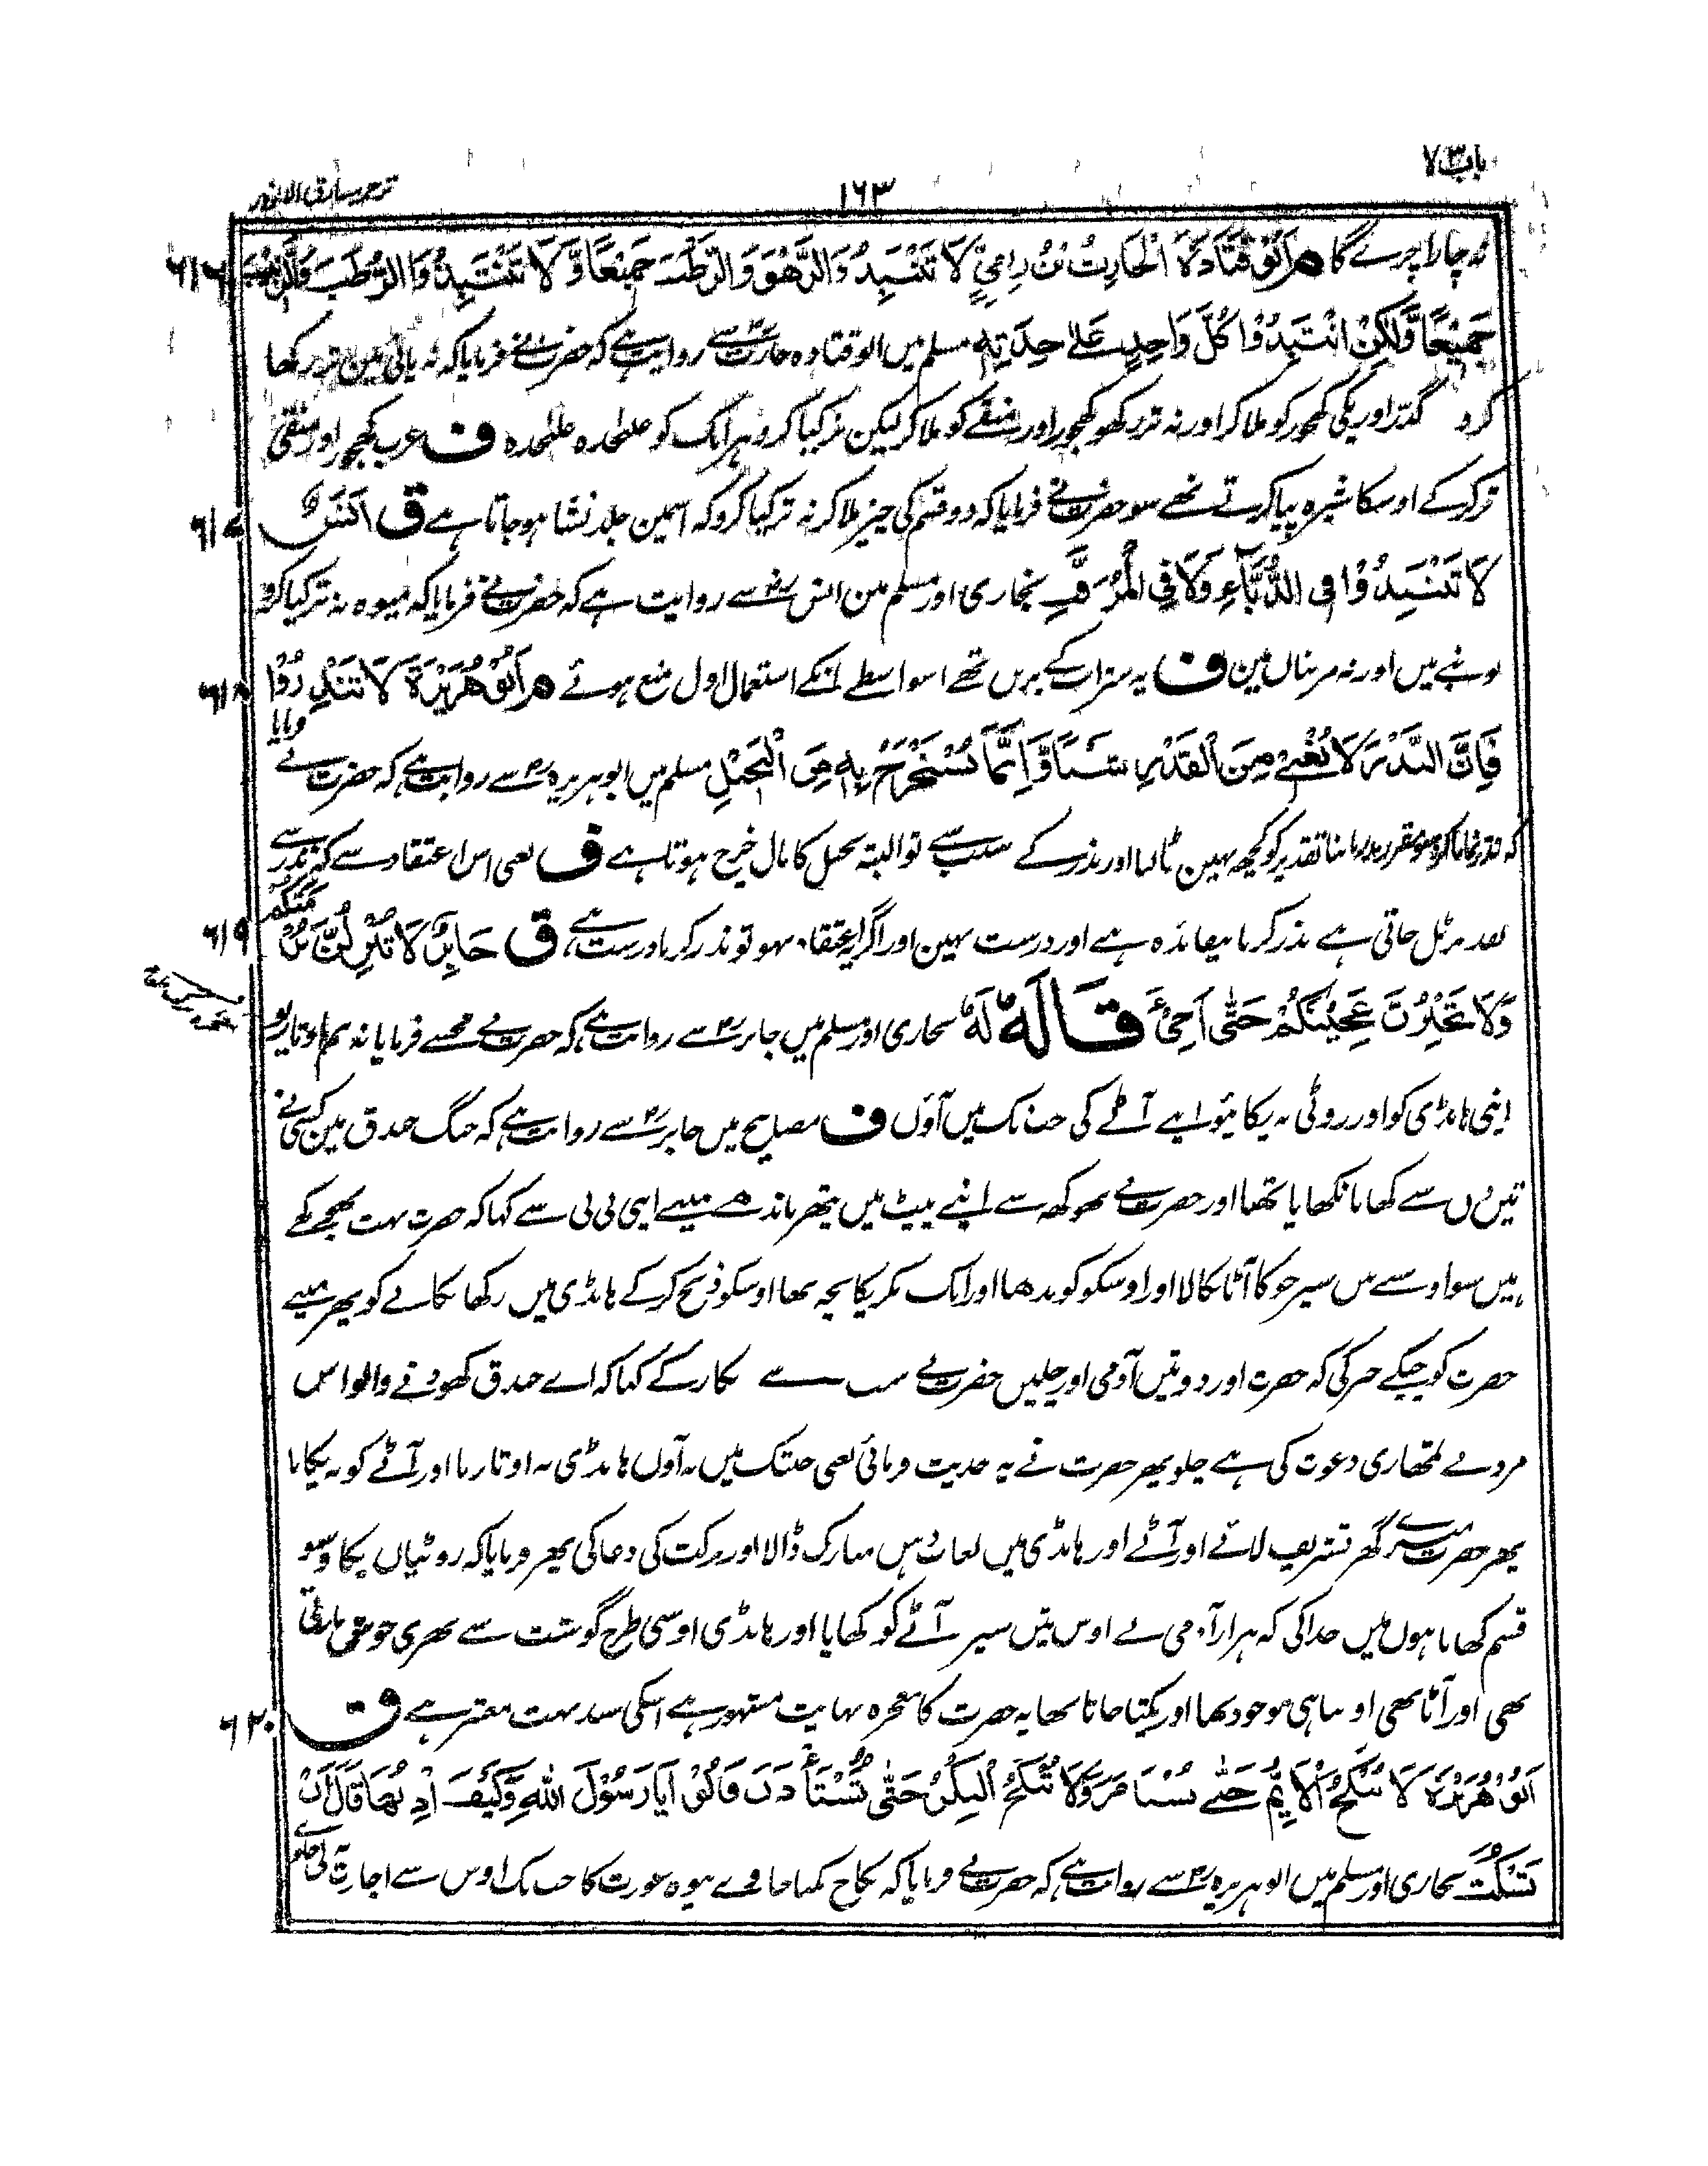 باب ٧٣
١٦٣
نہ چارا چرے گا م اَبُوْ قَتَادَةَ الْحَارِثُ بْنُ رِبْعِيٍّ لَا تَنْتَبِذُوا الزَّهْوَ وَالرُّطَبَ جَمِيْعًا وَّ لَا تَنْتَبِذُوا الرُّطَبَ وَالزَّبِيْبَ ٦١٦
جَمِيْعًا وَّلٰكِنْ انْتَبِذُوْا كُلَّ وَاحِدٍ عَلٰى حِدَتِهٖ مسلم میں ابو قتادہ حارث رض سے روایت ہے کہ حضرت نے فرمایا کہ نہ پانی مین تر رکھا
کرو گدر اور پکی کھجور کو ملا کر اور نہ تر رکھو کھجور اور منقے کو ملا کر لیکن تر کیا کرو ہر ایک کو علٰحدہ علٰحدہ ف عرب کھجور اور منقی
تر کرکے اوسکا شیرہ پیا کرتے تھے سو حضرت نے فرمایا کہ دو قسم کی چیز ملا کر نہ تر کیا کرو کہ اسمین جلد نشا ہو جاتا ہے ق اَنَسٌ ٦١٧
لَا تَنْتَبِذُوْا فِى الدُّبَّآءِ وَلَا فِى الْمُزَفَّتِ بخاری اور مسلم مین انس رض سے روایت ہے کہ حضرت نے فرمایا کہ میوہ نہ تر کیا کرو
تونبے میں اور نہ مرتبان مین ف یہ شراب کے برتن تھے اسواسطے انکے استعمال اول منع ہوئے م اَبُوْ هُرَيْرَةَ لَا تَنْذِرُوْا ٦١٨
فَاِنَّ النَّذْرَ لَا يُغْنِىْ مِنَ الْقَدَرِ شَيْئًا وَّاِنَّمَا يُسْتَخْرَجُ بِهٖ مِنَ الْبَخِيْلِ مسلم میں ابو ہریرہ رض سے روایت ہے کہ حضرت نے فرمایا
کہ نذر نہ مانا کرو سو مقرر نذر ماننا تقدیر کو کچھ نہین ٹالتا اور نذر کے سبب سے تو البتہ بخیل کا مال خرچ ہوتا ہے ف یعنی اس اعتقاد سے کہ نذر سے
تقدیر ٹل جاتی ہے نذر کرنا بیفائدہ ہے اور درست نہین اور اگر یہ اعتقاد نہو تو نذر کرنا درست ہے ق جَابِرٌ لَا تُنْزِلُنَّ بُرْمَتَكُمْ ٦١٩
وَلَا تَخْبِزُنَّ عَجِيْنَكُمْ حَتّٰى اَجِىْءَ قَالَهٗ لَهٗ بخاری اور مسلم میں جابر رض سے روایت ہے کہ حضرت نے مجھسے فرمایا نہ تم اوتاریو
اپنی ہانڈی کو اور روٹی نہ پکائیو اپنے آٹے کی جب تک میں آؤں ف مصابیح میں جابر رض سے روایت ہے کہ جنگ خندق مین کسی نے
تین دن سے کھانا نکھایا تھا اور حضرت نے بھوکھ سے اپنے پیٹ میں پتھر باندھے مینے اپنی بی بی سے کہا کہ حضرت بہت بھوکے
ہیں سو اوسنے تین سیر جو کا آٹا نکالا اور اوسکو گوندھا اور ایک بکری کا بچہ تھا اوسکو ذبح کرکے ہانڈی میں رکھا پکانے کو پھر مینے
حضرت کو چپکے خبر کی کہ حضرت اور دو تین آدمی اور چلیں حضرت نے سب سے پکار کے کہا کہ اے خندق کھودنے والو اس
مرد نے تمھاری دعوت کی ہے چلو پھر حضرت نے یہ حدیث فرمائی یعنی جبتک میں نہ آوں ہانڈی نہ اوتارنا اور آٹے کو نہ پکانا
پھر حضرت میرے گھر تشریف لائے اور آٹے اور ہانڈی میں لعاب دہن مبارک ڈالا اور برکت کی دعا کی پھر فرمایا کہ روٹیاں پکاؤ سو
قسم کھاتا ہوں میں خدا کی کہ ہزار آدمی نے اوس تین سیر آٹے کو کھایا اور ہانڈی اوسی طرح گوشت سے بھری جوش مارتی
تھی اور آٹا بھی اوتنا ہی موجود تھا اور پکتا جاتا تھا یہ حضرت کا معجزہ نہایت مشہور ہے اسکی سند بہت معتبر ہے ق ٦٢٠
اَبُوْ هُرَيْرَةَ لَا تُنْكَحُ الْاَيِّمُ حَتّٰى تُسْتَأْمَرَ وَلَا تُنْكَحُ الْبِكْرُ حَتّٰى تُسْتَأْذَنَ قَالُوْا يَا رَسُوْلَ اللّٰهِ وَكَيْفَ اِذْنُهَا قَالَ اَنْ
تَسْكُتَ بخاری اور مسلم میں ابو ہریرہ رض سے روایت ہے کہ حضرت نے فرمایا کہ نکاح نکیا جاوے بیوہ عورت کا جب تک اوس سے اجازت نہ لی جاوے